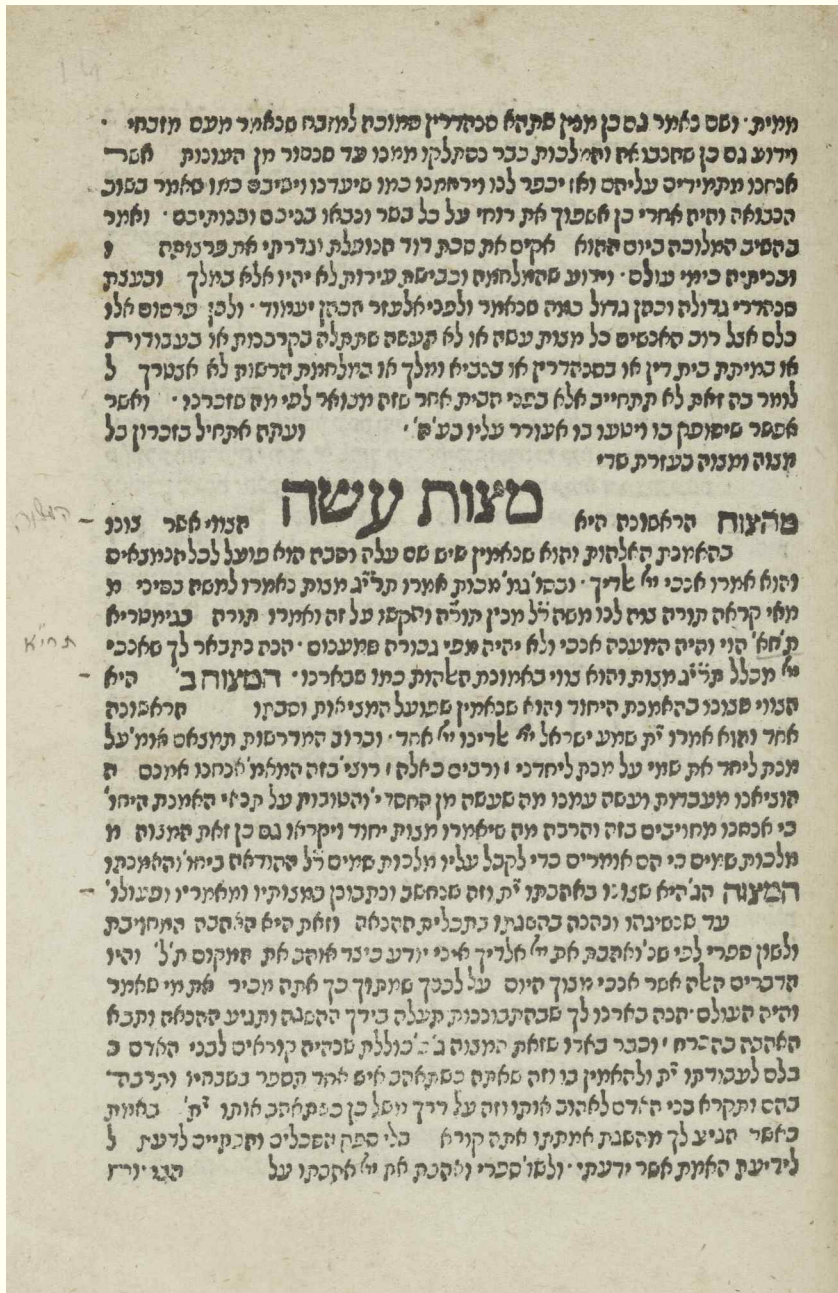 ממית · ושם נאמר גם כן מנין שתהא סנהדרין סמוכה למזבח שנאמר מעם מזבחי ·
וידוע גם כן שהנבואה והמלכות כבר נסתלקו ממנו עד שנסור מן העונות אשר
אנחנו מתמידים עליהם ואז יכפר לנו וירחמנו כמו שיעדנו וישיבם כמו שאמר בשוב
הנבואה והיה אחרי כן אשפוך את רוחי על כל בשר ונבאו בניכם ובנותיכם · ואמר
בהשיב המלוכה ביום ההוא אקים את סכת דוד הנופלת וגדרתי את פרצותיה ו
ובניתיה כימי עולם · וידוע שהמלחמה וכבישת עירות לא יהיו אלא במלך ובעצת
סנהדרי גדולה וכהן גדול כמה שנאמר ולפני אלעזר הכהן יעמוד · ולכן פרסום אלו
כלם אצל רוב האנשים כל מצות עשה או לא תעשה שתתלה בקרבנות או בעבודות
או במיתת בית דין או בסנהדרין או בנביא ומלך או במלחמת הרשות לא אצטרך ל
לומר בה זאת לא תתחייב אלא בפני הבית אחר שזה מבואר לפי מה שזכרנו · ואשר
אפשר שיסופק בו ויטעו בו אעורר עליו בע״ה · ועתה אתחיל בזכרון כל
מצוה ומצוה בעזרת שדי
מצות עשה
מהצוה הראשונה היא הצווי אשר צונו
בהאמנת האלהות והוא שנאמין שיש שם עלה וסבה הוא פועל לכל הנמצאים
והוא אמרו אנכי יי׳ אלדיך · ובסו׳ גמ׳ מכות אמרו תרי״ג מצות נאמרו למשה בסיני מ
מאי קראה תורה צוה לנו משה ר״ל מנין תור״ה והקשו על זה ואמרו תורה בגימטריא
תרי״א
ת׳ חא׳ הוי והיה המענה אנכי ולא יהיה מפי גבורה שמענום · הנה נתבאר לך שאנכי
יי׳ מכלל תרי״ג מצות והוא צווי באמונת האלהות כמו שבארנו · המצוה ב׳ היא
הצווי שצונו בהאמנת היחוד והוא שנאמין שפועל המציאות וסבתו הראשונה
אחד והוא אמרו ית׳ שמע ישראל יי׳ אלדינו יי׳ אחד · וברוב המדרשות תמצאם אומ׳ על
מנת ליחד את שמי על מנת ליחדני ורבים כאלה רוצי׳ בזה המאמ׳ אנחנו אמנם ה
הוציאנו מעבדות ועשה עמנו מה שעשה מן החסדי׳ והטובות על תנאי האמנת היחו׳
כי אנחנו מחוייבים בזה והרבה מה שיאמרו מצות יחוד ויקראו גם כן זאת המצוה מ
מלכות שמים כי הם אומרים כדי לקבל עליו מלכות שמים ר״ל ההודאה ביחו׳ והאמנתו
המצוה הג׳ היא שצונו באהבתו ית׳ וזה שנחשב ונתבונן במצותיו ומאמריו ופעולו׳
עד שנשיגהו ונהנה בהשגתו בתכלית ההנאה וזאת היא האהבה המחויבת
ולשון ספרי לפי שנ׳ ואהבת את יי׳ אלדיך איני יודע כיצד אוהב את המקום ת׳ל׳ והיו
הדברים האלה אשר אנכי מצוך היום על לבבך שמתוך כך אתה מכיר את מי שאמר
והיה העולם · הנה בארנו לך שבהתבוננות תעלה בידך ההשגה ותגיע ההנאה ותבא
האהבה בהכרח וכבר בארו שזאת המצוה ג׳ כ׳ כוללת שנהיה קוראים לבני האדם כ
כלם לעבודתו ית׳ ולהאמין בו וזה שאתה כשתאהב איש אחד תספר בשבחיו ותרבה
בהם ותקרא בני האדם לאהוב אותו וזה על דרך משל כן כשתאהב אותו ית׳ באמת
כאשר הגיע לך מהשגת אמתתו אתה קורא בלי ספק הסכלים והכתיים לדעת ל
לידיעת האמת אשר ידעתי · ולשו׳ ספרי ואהבת את יי׳ אהבתו על